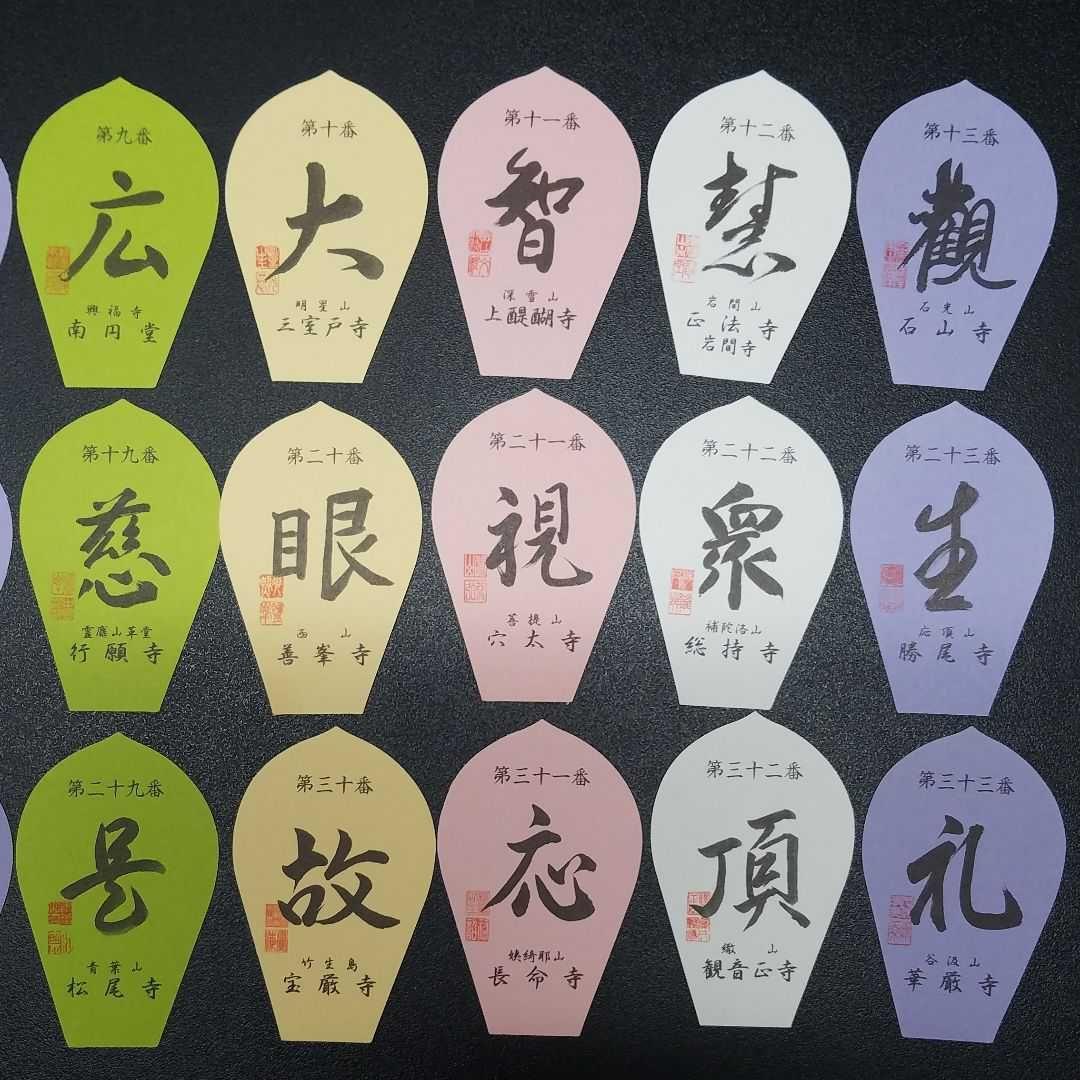 第九番
広
興福寺
南円堂
第十番
大
明星山
三室戸寺
第十一番
智
深雪山
上醍醐寺
第十二番
慧
岩間山
正法寺
岩間寺
第十三番
觀
石光山
石山寺
第十九番
慈
霊麀山革堂
行願寺
第二十番
眼
西山
善峯寺
第二十一番
視
菩提山
穴太寺
第二十二番
衆
補陀洛山
総持寺
第二十三番
生
応頂山
勝尾寺
第二十九番
是
青葉山
松尾寺
第三十番
故
竹生島
宝厳寺
第三十一番
応
姨綺耶山
長命寺
第三十二番
頂
繖山
観音正寺
第三十三番
礼
谷汲山
華厳寺